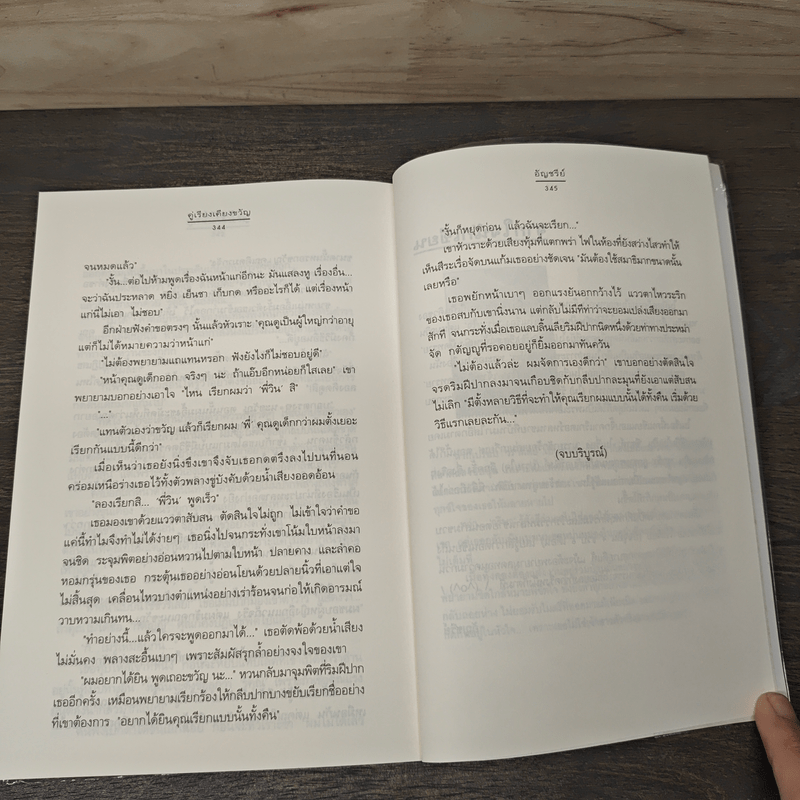 คู่เรียงเคียงขวัญ
344
จนหมดแล้ว"
"งั้น...ต่อไปห้ามพูดเรื่องฉันหน้าแก่อีกนะ มันแสลงหู เรื่องอื่น...
จะว่าฉันประหลาด หยิ่ง เย็นชา เก็บกด หรืออะไรก็ได้ แต่เรื่องหน้า
แก่นี่ไม่เอา ไม่ชอบ"
อีกฝ่ายฟังคำขอตรงๆ นั้นแล้วหัวเราะ "คุณดูเป็นผู้ใหญ่กว่าอายุ
แต่ก็ไม่ได้หมายความว่าหน้าแก่"
"ไม่ต้องพยายามแถแทนหรอก ฟังยังไงก็ไม่ชอบอยู่ดี"
"หน้าคุณดูเด็กออก จริงๆ นะ ถ้าแอ๊บอีกหน่อยก็ใสเลย" เขา
พยายามบอกอย่างเอาใจ "ไหน เรียกผมว่า 'พี่วิน' สิ"
"..."
"แทนตัวเองว่าขวัญ แล้วก็เรียกผม 'พี่' คุณดูเด็กกว่าผมตั้งเยอะ
เรียกกันแบบนี้ดีกว่า"
เมื่อเห็นว่าเธอยังนิ่งขึงเขาจึงจับเธอกดตรึงลงไปบนที่นอน
คร่อมเหนือร่างเธอไว้ทั้งตัวพลางขู่บังคับด้วยน้ำเสียงออดอ้อน
"ลองเรียกสิ... 'พี่วิน' พูดเร็ว"
เธอมองเขาด้วยแววตาสับสน ตัดสินใจไม่ถูก ไม่เข้าใจว่าคำขอ
แค่นี้ทำไมจึงทำไม่ได้ง่ายๆ เธอนิ่งไปจนกระทั่งเขาโน้มใบหน้าลงมา
จนชิด ระจุมพิตอย่างอ่อนหวานไปตามใบหน้า ปลายคาง และลำคอ
หอมกรุ่นของเธอ กระตุ้นเธออย่างอ่อนโยนด้วยปลายนิ้วที่เอาแต่ใจ
ไม่สิ้นสุด เคลื่อนไหวบางตำแหน่งอย่างเร่าร้อนจนก่อให้เกิดอารมณ์
วาบหวามเกินทน...
"ทำอย่างนี้...แล้วใครจะพูดออกมาได้..." เธอตัดพ้อด้วยน้ำเสียง
ไม่มั่นคง พลางสะอื้นเบาๆ เพราะสัมผัสรุกล้ำอย่างจงใจของเขา
"ผมอยากได้ยิน พูดเถอะขวัญ นะ..." หวนกลับมาจุมพิตที่ริมฝีปาก
เธออีกครั้ง เหมือนพยายามเรียกร้องให้กลีบปากบางขยับเรียกชื่ออย่าง
ที่เขาต้องการ "อยากได้ยินคุณเรียกแบบนั้นทั้งคืน"
อัญชรีย์
345
"งั้นก็หยุดก่อน แล้วฉันจะเรียก..."
เขาหัวเราะด้วยเสียงทุ้มที่แตกพร่า ไฟในห้องที่ยังสว่างไสวทำให้
เห็นสีระเรื่อจัดบนแก้มเธออย่างชัดเจน "มันต้องใช้สมาธิมากขนาดนั้น
เลยหรือ"
เธอพยักหน้าเบาๆ ออกแรงยันอกกว้างไว้ แววตาไหวระริก
ของเธอสบกับเขานิ่งนาน แต่กลับไม่มีทีท่าว่าจะยอมเปล่งเสียงออกมา
สักที จนกระทั่งเมื่อเธอแลบลิ้นเลียริมฝีปากนิดหนึ่งด้วยท่าทางประหม่า
จัด กตัญญูที่รอคอยอยู่ก็ยิ้มออกมาทันควัน
"ไม่ต้องแล้วล่ะ ผมจัดการเองดีกว่า" เขาบอกอย่างตัดสินใจ
จรดริมฝีปากลงมาจนเกือบชิดกับกลีบปากละมุนที่ยังเอาแต่สับสน
ไม่เลิก "มีตั้งหลายวิธีที่จะทำให้คุณเรียกผมแบบนั้นได้ทั้งคืน เริ่มด้วย
วิธีแรกเลยละกัน..."
(จบบริบูรณ์)